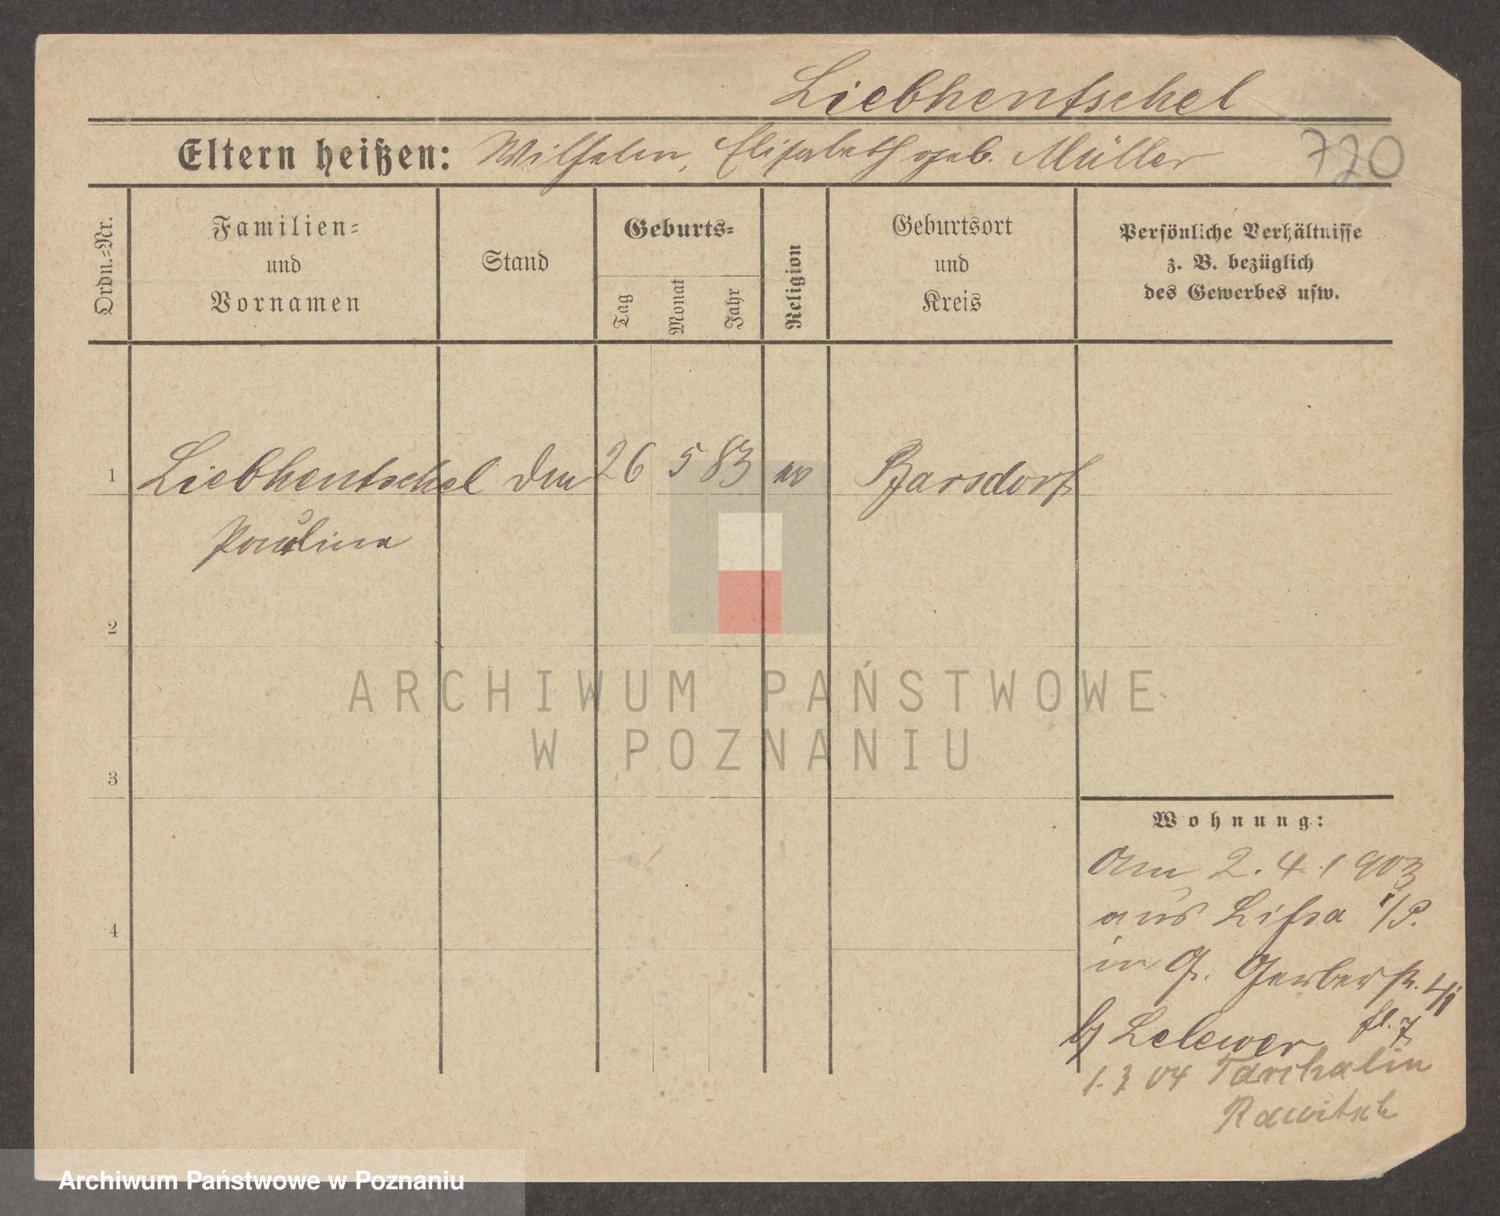 Liebhentschel
Eltern heißen: Wilhelm, Elisabeth geb. Müller
720
Ordn.-Nr.
Familien-
und
Vornamen
Stand
Geburts-
Tag
Monat
Jahr
Religion
Geburtsort
und
Kreis
Persönliche Verhältnisse
z. B. bezüglich
des Gewerbes usw.
1 Liebhentschel 26 5 83 Barsdorf
Pauline
2
3
4
Wohnung:
Am 2.4.1903
aus Lissa i/P.
in G. Gerberstr.
b/ Lelewer
04 Tarchalin
Rawitsch
ARCHIWUM PAŃSTWOWE
W POZNANIU
Archiwum Państwowe w Poznaniu